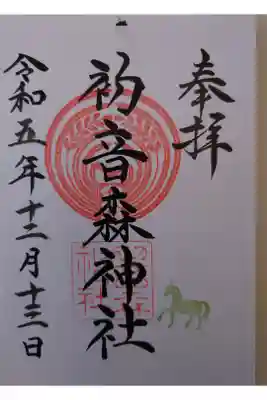 奉拝
初音森神社
令和五年十二月十三日